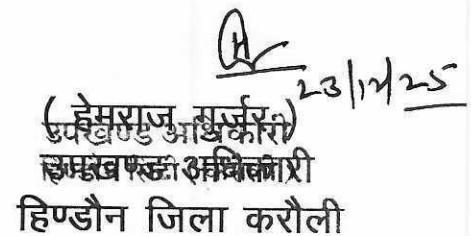 23/12/25
( हेमराज गुर्जर )
उपखण्ड अधिकारी
उपखण्ड अधिकारी
हिण्डौन जिला करौली